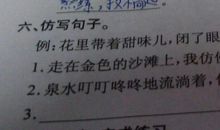 六、仿写句子。
例:花里带着甜味儿,闭了眼
1.走在金色的沙滩上,我仿
2.泉水叮叮咚咚地流淌着,
3.